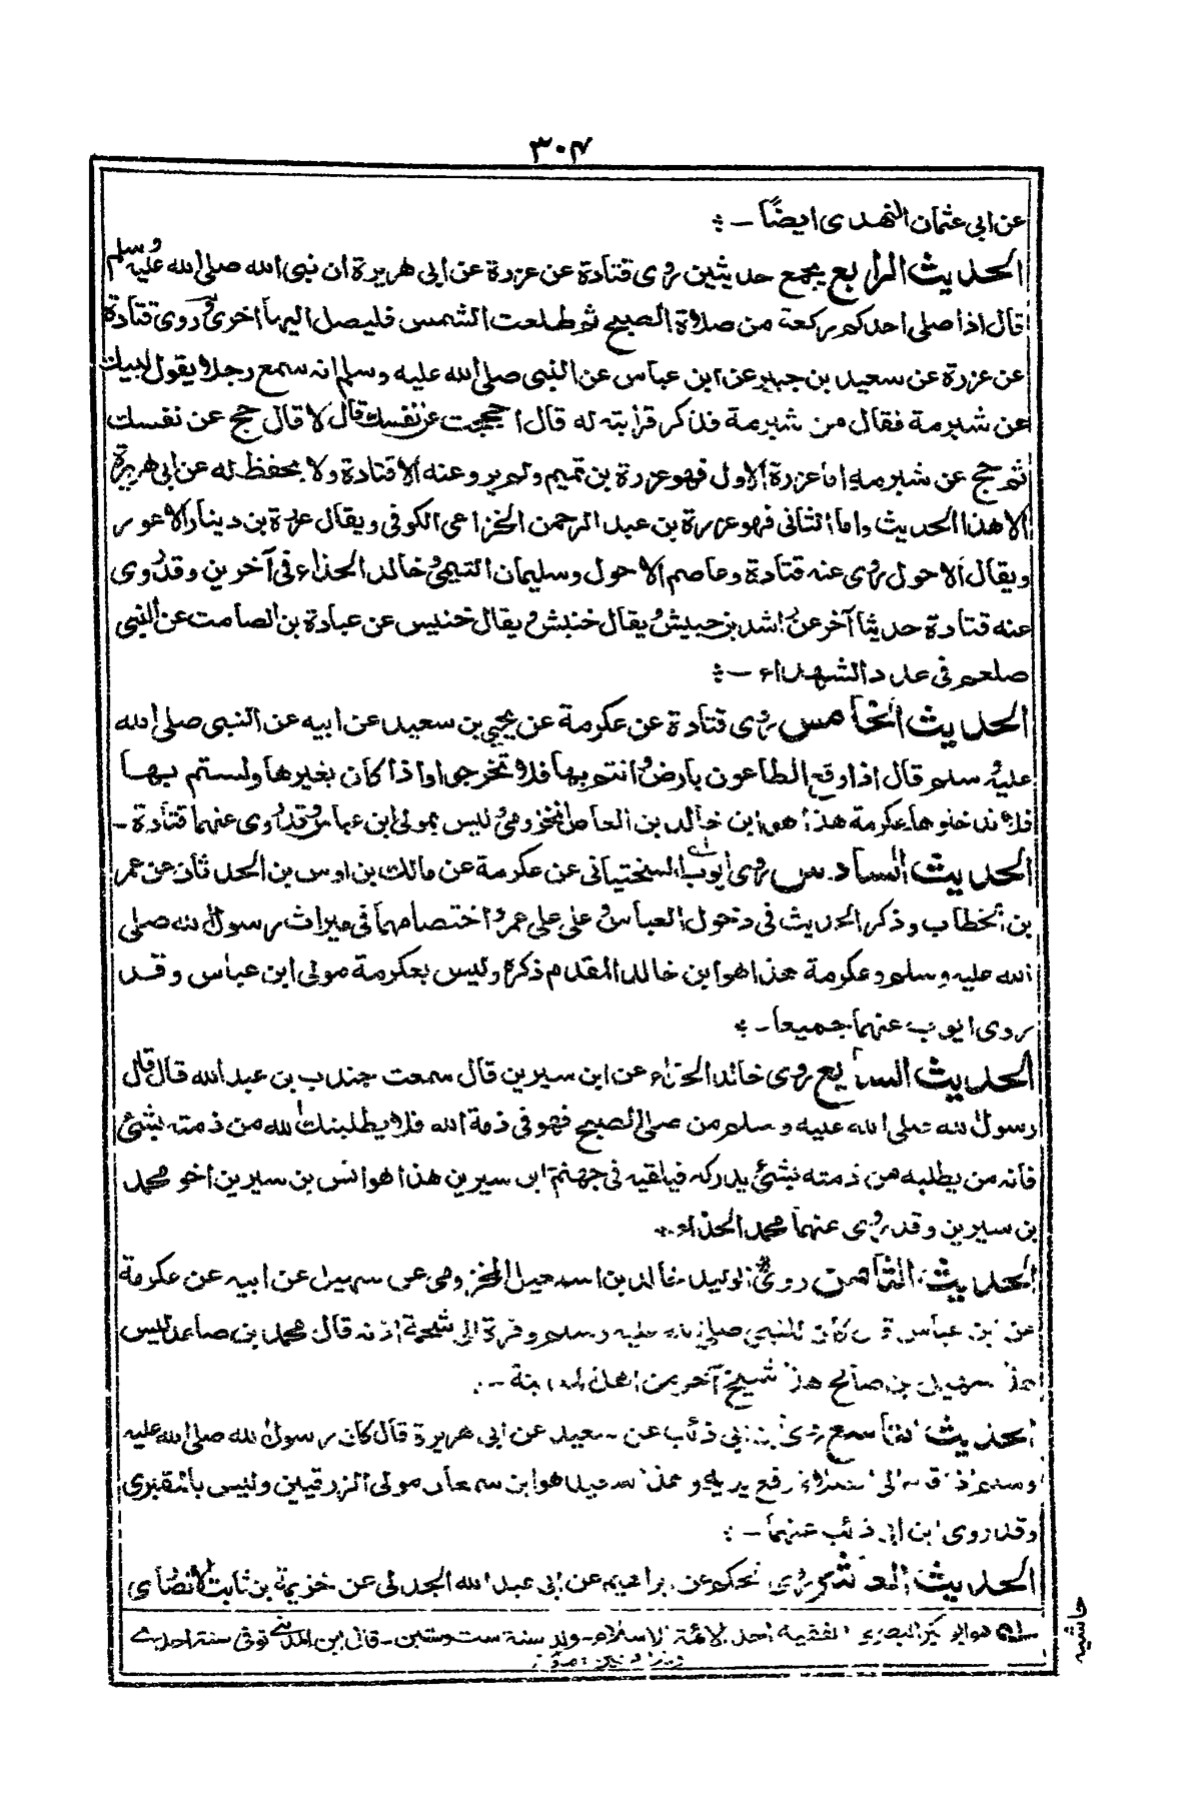 ٣٠٤
عن ابى عثمان النهدى ايضًا -:
الحديث الرابع يجمع حديثين روى قتادة عن عزرة عن ابى هريرة ان نبى الله صلى الله عليه وسلم
قال اذا صلى احدكم ركعة من صلاة الصبح ثم طلعت الشمس فليصل اليها اخرى وروى قتادة
عن عزرة عن سعيد بن جبير عن ابن عباس عن النبى صلى الله عليه وسلم انه سمع رجلا يقول لبيك
عن شبرمة فقال من شبرمة فذكر قرابته له قال احججت عن نفسك قال لا قال حج عن نفسك
ثم حج عن شبرمه اما عزرة الاول فهو عزرة بن تميم ولم يرو عنه الا قتادة ولا يحفظ له عن ابى هريرة
الا هذا الحديث واما الثانى فهو عزرة بن عبد الرحمن الخزاعى الكوفى ويقال عزرة بن دينار الاعور
ويقال الاحول روى عنه قتادة وعاصم الاحول وسليمان التيمى وخالد الحذاء فى آخرين وقد روى
عنه قتادة حديثا آخر عن راشد بن حبيش ويقال خنبش ويقال خنيس عن عبادة بن الصامت عن النبى
صلعم فى عدد الشهداء -:
الحديث الخامس روى قتادة عن عكرمة عن يحيى بن سعيد عن ابيه عن النبى صلى الله
عليه سلم قال اذا وقع الطاعون بارض وانتم بها فلا تخرجوا واذا كان بغيرها ولستم بها
فلا تدخلوها عكرمة هذا هو ابن خالد بن العاص المخزومى وليس بمولى ابن عباس وقد روى عنهما قتادة -
الحديث السادس روى ايوب السختيانى عن عكرمة عن مالك بن اوس بن الحدثان عن عمر
بن الخطاب وذكر الحديث فى دخول العباس وعلى على عمر واختصامهما فى ميراث رسول الله صلى
الله عليه وسلم وعكرمة هذا هو ابن خالد المقدم ذكره وليس بعكرمة مولى ابن عباس وقد
روى ايوب عنهما جميعا -:
الحديث السابع روى خالد الحذاء عن ابن سيرين قال سمعت جندب بن عبد الله قال قال
رسول الله صلى الله عليه وسلم من صلى الصبح فهو فى ذمة الله فلا يطلبنك الله من ذمته بشئ
فانه من يطلبه من ذمته بشئ يدركه فيلقيه فى جهنم ابن سيرين هذا هو انس بن سيرين اخو محمد
بن سيرين وقد روى عنهما محمد الحذاء -:
الحديث الثامن روى الوليد خالد بن اسمعيل المخزومى عن سهيل عن ابيه عن عكرمة
عن ابن عباس قال كان للنبى صلى الله عليه وسلم وفرة الى شحمة اذنه قال محمد بن صاعد ليس
هذا سهيل بن صالح هذا شيخ آخر من اهل المدينة -:
الحديث التاسع روى ابن ابى ذئب عن سعيد عن ابى هريرة قال كان رسول الله صلى الله عليه
وسلم اذا قام الى الصلاة رفع يديه وهذا سعيد هو ابن سمعان مولى الزرقيين وليس بالمقبرى
وقد روى ابن ابى ذئب عنهما -:
الحديث العاشر روى الحكم عن ابراهيم عن ابى عبد الله الجدلى عن خزيمة بن ثابت الانصارى
هو ابو بكر البصرى الفقيه احد الائمة الاسلام - ولد سنة ست وستين - قال ابن المدينى توفى سنة احدى
حاشيه